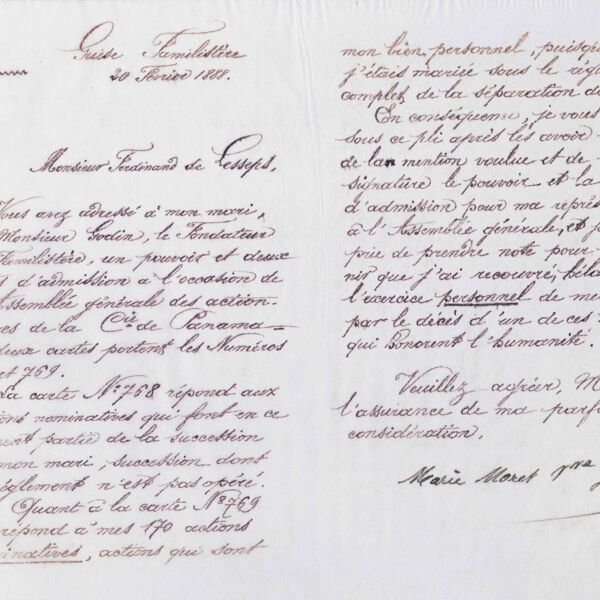 Guise Familistère
20 Février 1888.
Monsieur Ferdinand de Lesseps,
Vous avez adressé à mon mari,
Monsieur Godin, le Fondateur
Familistère, un pouvoir et deux
d'admission à l'occasion de
Assemblée générale des action.
res de la Cie de Panama
deux cartes portent les Numéros
et 769.
La carte No 768 répond aux
ions nominatives qui font en ce
ment partie de la succession
mon mari, succession dont
règlement n'est pas opéré.
Quant à la carte No 769
répond à mes 170 actions
minatives, actions qui sont
mon bien personnel, puisque
j'étais mariée sous le rég
complet de la séparation de
En conséquence, je vous
sous ce pli après les avoir
de la mention voulue et de
signature le pouvoir et la
d'admission pour me représ
à l'Assemblée générale, et je
prie de prendre note pour
nir que j'ai recouvré, hélas
l'exercice personnel de me
par le décès d'un de ces
qui honorent l'humanité.
Veuillez agréer, M
l'assurance de ma parf
considération,
Marie Moret Vve